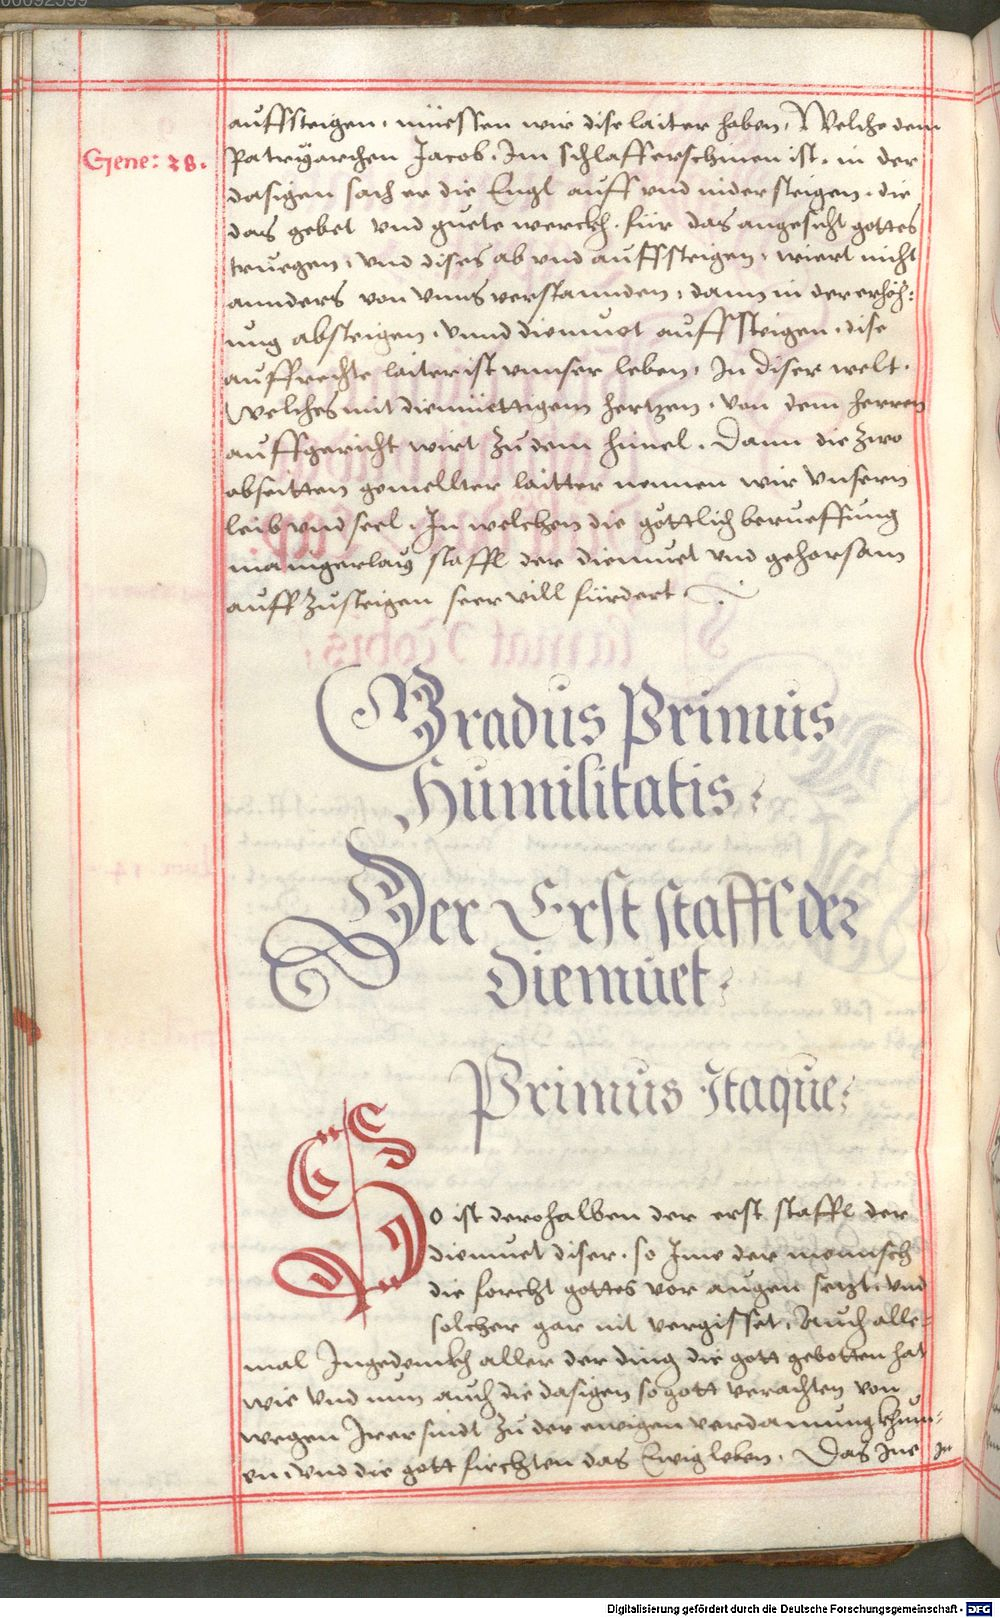 auffsteigen, müessen wir dise laiter haben, Welche dem
Gene: 28.
Patryarchen Jacob. Im schlaff erschinen ist. in der
dasigen sach er die Engl auff vnd nider steigen. die
das gebet vnd guete werckh. für das angesicht gottes
truegen, vnd dises ab vnd auffsteigen, wiert nicht
annders von vnns verstannden, dann in der erhöh:
ung absteigen, vnnd diemuet auffsteigen, dise
auffrechte laiter ist vnnser leben, In diser welt.
Welches mit diemüettigem hertzen, von dem herren
auffgericht wirt zu dem himel. Dann die zwo
abseitten gemellter laitter nennen wir vnsern
leib vnd seel, In welchen die göttlich berueffung
maingerlay staffl der diemuet vnd gehorsam
auff zusteigen seer vill fürdert.
Gradus Primus
Humilitatis
Der Erst staffl der
Diemuet
Primus Itaque
So ist derohalben der erst staffl der
diemuet diser. so Ime der mennsch
die forcht gottes vor augen setzt. vnd
solcher gar nit vergisset, Auch alle-
mal Ingedenkh aller der ding die gott gebotten hat
wie vnd nun auch die dasigen so gott verachten von
wegen Irer sindt zu der ewigen verdamung khum-
en, vnd die gott firchten das Ewig leben. Das Ine in
00092599
Digitalisierung gefördert durch die Deutsche Forschungsgemeinschaft - DFG